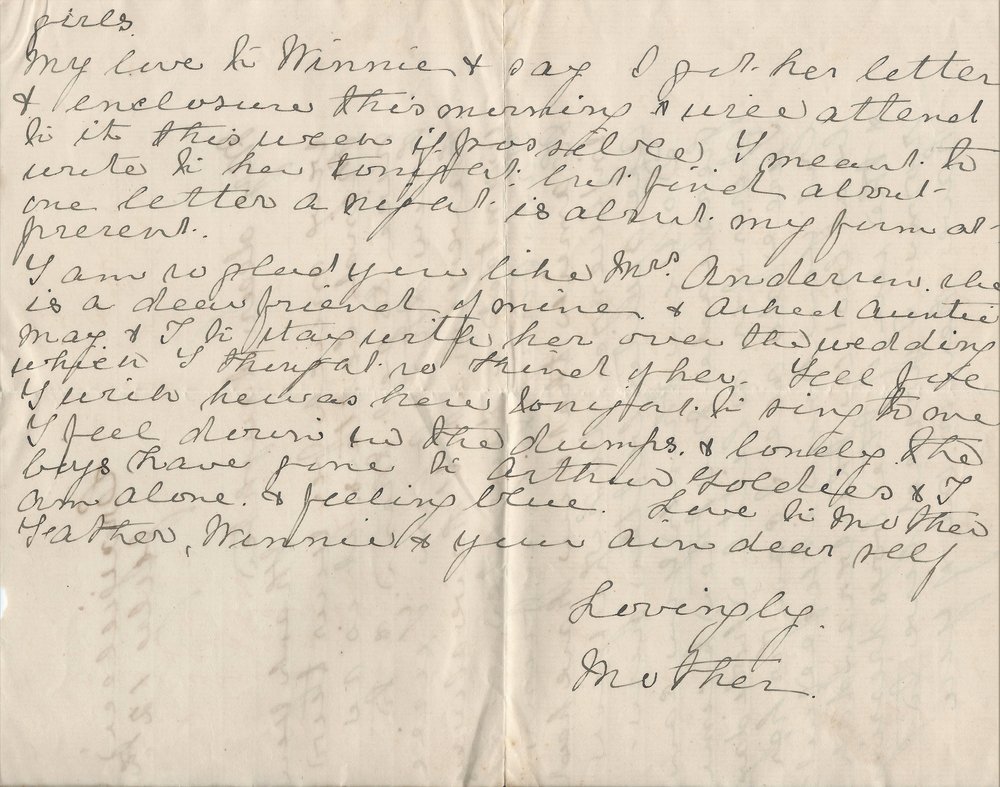 girls.
My love to Winnie & say I got her letter
& enclosure this morning & will attend
to it this week if possible I meant to
write to her tonight but find about
one letter a night is about my form at
present.
I am so glad you like Mrs. Anderson. she
is a dear friend of mine & asked Auntie
May & I to stay with her over the wedding
which I thought so kind of her. Tell
I wish he was here tonight to sing to me
I feel down in the dumps. & lonely. the
boys have gone to Arthur & I
am alone. & feeling blue. Love to Mother
Father, Winnie & your ain dear self
Lovingly.
Mother.